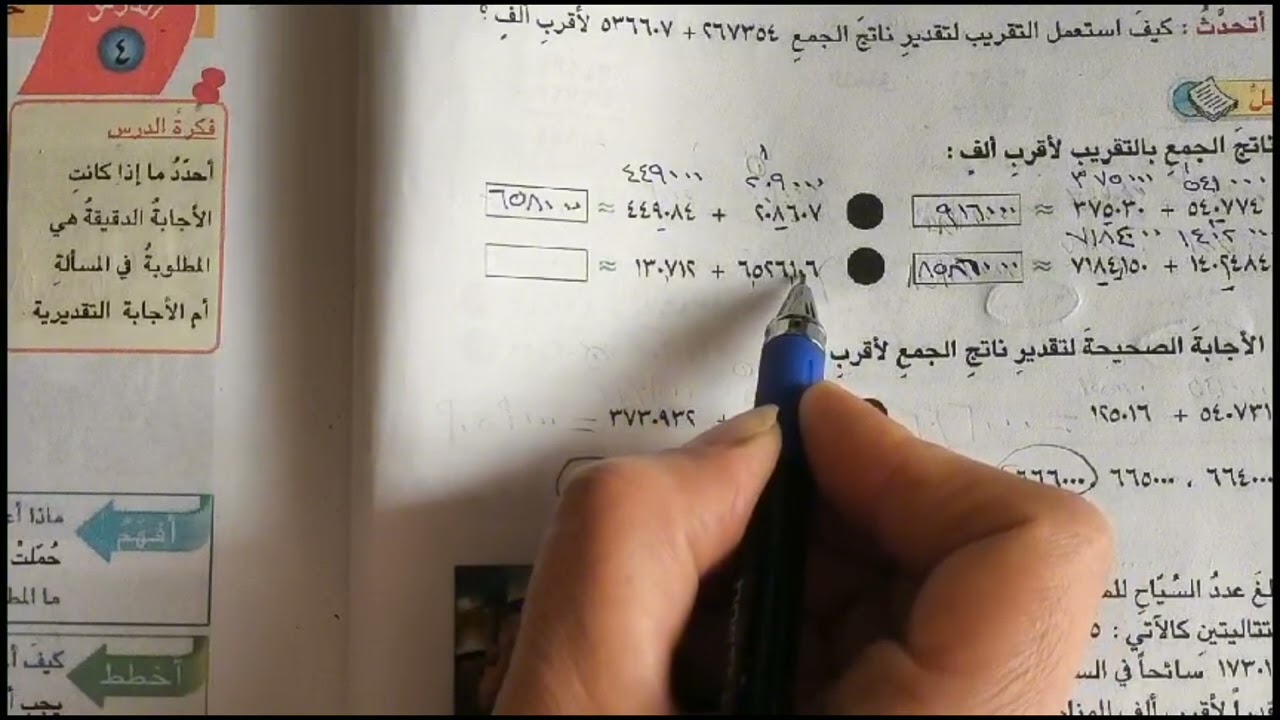 أتحدَّثُ : كيفَ استعمل التقريب لتقديرِ ناتجَ الجمعِ ٢٦٧٣٥٤ + ٥٣٦٦٠٧ لأقربِ ألفٍ؟
ناتجَ الجمعِ بالتقريبِ لأقربِ ألفٍ :
٥٤١٠٠٠ ٣٧٥٠٠٠
٥٤٠٧٧٤ + ٣٧٥٠٣٠ ≈ ٩١٦٠٠٠
٢٠٩٠٠٠ ٤٤٩٠٠٠
٢٠٨٦٠٧ + ٤٤٩٠٨٤ ≈ ٦٥٨٠٠٠
١٤٠٢٤٨٤ + ٧١٨٤١٥٠ ≈
٦٥٢٦١٠٦ + ١٣٠٧١٢ ≈
الأجابةَ الصحيحةَ لتقديرِ ناتجِ الجمعِ لأقربِ
٥٤٠٧٣١ + ١٢٥٠١٦
٣٧٣٠٩٣٢
٦٦٤٠٠٠ ، ٦٦٥٠٠٠ ٦٦٦٠٠٠
عددُ السُيّاحِ
تتاليتينِ كالآتي : ٥
١٧٣٠١ سائحاً في
لأقربِ ألفٍ
الدرس
٤
فكرةُ الدرسِ
أحدّدُ ما إذا كانتِ
الأجابةُ الدقيقةُ هي
المطلوبةُ في المسألةِ
أم الأجابة التقديرية
أفهَمُ
ماذا
حُمّلتْ
ما
أخطط
كيفَ
يجب